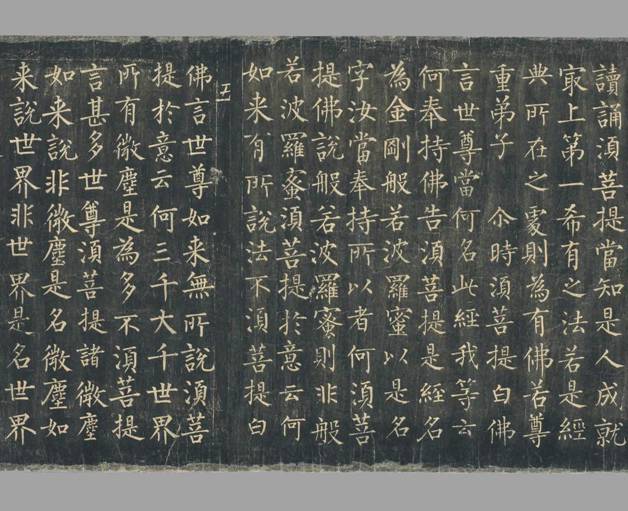 讀誦湏菩提當知是人成就
㝡上第一希有之法若是經
典所在之處則為有佛若尊
重弟子 尒時湏菩提白佛
言世尊當何名此經我等云
何奉持佛告湏菩提是經名
為金剛般若波羅蜜以是名
字汝當奉持所以者何湏菩
提佛說般若波羅蜜則非般
若波羅蜜湏菩提於意云何
如来有所說法不湏菩提白
五
佛言世尊如来無所說湏菩
提於意云何三千大千世界
所有微塵是為多不湏菩提
言甚多世尊湏菩提諸微塵
如来說非微塵是名微塵如
来說世界非世界是名世界